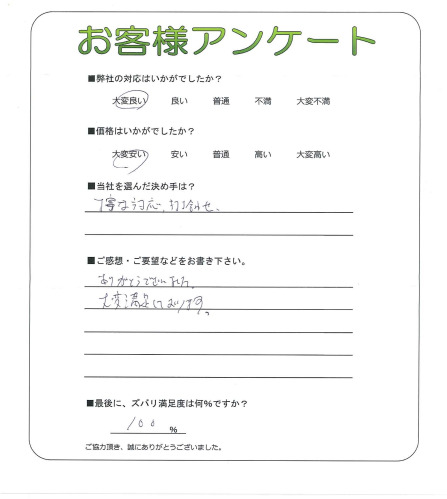 お客様アンケート
■弊社の対応はいかがでしたか?
大変良い 良い 普通 不満 大変不満
■価格はいかがでしたか?
大変安い 安い 普通 高い 大変高い
■当社を選んだ決め手は?
丁寧な対応、打合せ、
■ご感想・ご要望などをお書き下さい。
ありがとうございました。
大変満足しております。
■最後に、ズバリ満足度は何%ですか?
100 %
ご協力頂き、誠にありがとうございました。